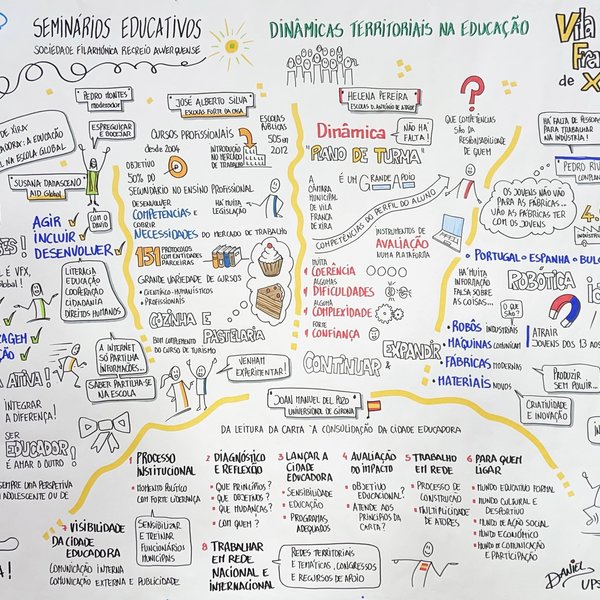 SEMINÁRIOS EDUCATIVOS
SOCIEDADE FILARMÓNICA RECREIO ALVERQUENSE
DINÂMICAS TERRITORIAIS NA EDUCAÇÃO
Vila
Fra
de X
DE XIRA
DORA: A EDUCAÇÃO
NA ESCOLA GLOBAL
SUSANA DAMASCENO
AID Global
AGIR
INCLUIR
DESENVOLVER
LITERACIA
EDUCAÇÃO
COOPERAÇÃO
CIDADANIA
DIREITOS HUMANOS
É VFX,
A INTERNET
SÓ PARTILHA
INFORMAÇÕES...
SABER PARTILHA-SE
NA ESCOLA
ATIVA!
INTEGRAR
A DIFERENÇA!
SER
EDUCADOR
É AMAR O OUTRO
SEMPRE UMA PERSPETIVA
ADOLESCENTE OU DE
PEDRO MONTES
moderador
ESPREGUIÇAR
E BOCEJAR
COM O
DAVID
JOSÉ ALBERTO SILVA
ESCOLAS FORTE DA CASA
CURSOS PROFISSIONAIS
desde 2004
INTRODUÇÃO
NO MERCADO
DE TRABALHO
ESCOLAS
PÚBLICAS
SOS em
2012
OBJETIVO
50% DO
SECUNDÁRIO NO ENSINO PROFISSIONAL
DESENVOLVER
COMPETÊNCIAS E
COBRIR
NECESSIDADES DO MERCADO DE TRABALHO
HÁ MUITA
LEGISLAÇÃO
151 PROTOCOLOS
COM ENTIDADES
PARCEIRAS
GRANDE VARIEDADE DE CURSOS
• CIENTÍFICO-HUMANÍSTICOS
• PROFISSIONAIS
COZINHA E
PASTELARIA
BOM COMPLEMENTO
DO CURSO DE TURISMO
VENHAM
EXPERIMENTAR!
HELENA PEREIRA
ESCOLAS D. ANTÓNIO DE ATAÍDE
Dinâmica
NÃO HÁ
FALTA!
"PLANO DE TURMA"
A
CÂMARA
MUNICIPAL
DE VILA
FRANCA
DE XIRA
É UM GRANDE APOIO
COMPETÊNCIAS DO PERFIL DO ALUNO
INSTRUMENTOS DE
AVALIAÇÃO
NUMA PLATAFORMA
MUITA
COERÊNCIA
ALGUMAS
DIFICULDADES
ALGUMA
COMPLEXIDADE
FORTE
CONFIANÇA
CONTINUAR &
EXPANDIR
QUE COMPETÊNCIAS
SÃO DA
RESPONSABILIDADE
DE QUEM
HÁ FALTA DE PESSOAS
PARA TRABALHAR
NA INDÚSTRIA!
OS JOVENS NÃO VÃO
PARA AS FÁBRICAS...
VÃO AS FÁBRICAS TER
COM OS JOVENS
• PORTUGAL • ESPANHA • BULG
HÁ MUITA
INFORMAÇÃO
FALSA SOBRE
AS COISAS...
ROBÓTICA
O QUE
SÃO?
• ROBÔS INDUSTRIAIS
• MÁQUINAS COMUNICAM
• FÁBRICAS MODERNAS
• MATERIAIS NOVOS
ATRAIR
JOVENS DOS 13 AOS
PRODUZIR
SEM POLUIR...
CRIATIVIDADE
E INOVAÇÃO
JOAN MANUEL DEL POZO
UNIVERSIDADE DE GIRONA
DA LEITURA DA CARTA À CONSOLIDAÇÃO DA CIDADE EDUCADORA
1 PROCESSO
INSTITUCIONAL
• MOMENTO POLÍTICO
COM FORTE LIDERANÇA
SENSIBILIZAR
E TREINAR
FUNCIONÁRIOS
MUNICIPAIS
2 DIAGNÓSTICO
E REFLEXÃO
• QUE PRINCÍPIOS?
• QUE OBJETIVOS?
• QUE MUDANÇAS?
• COM QUEM?
3 LANÇAR A
CIDADE
EDUCADORA
• SENSIBILIDADE
• EDUCAÇÃO
• PROGRAMAS
ADEQUADOS
4 AVALIAÇÃO
DO IMPACTO
• OBJETIVO
EDUCACIONAL?
• ATENDE AOS
PRINCÍPIOS DA
CARTA?
5 TRABALHO
EM REDE
• PROCESSO DE
CONSTRUÇÃO
• MULTIPLICIDADE
DE ATORES
6 PARA QUEM
LIGAR
• MUNDO EDUCATIVO FORMAL
• MUNDO CULTURAL E
DESPORTIVO
• MUNDO DE AÇÃO SOCIAL
• MUNDO ECONÓMICO
• MUNDO DE COMUNICAÇÃO
E PARTICIPAÇÃO
7 VISIBILIDADE
DA CIDADE
EDUCADORA
COMUNICAÇÃO INTERNA
COMUNICAÇÃO EXTERNA E PUBLICIDADE
8 TRABALHAR
EM REDE
NACIONAL E
INTERNACIONAL
REDES TERRITORIAIS
E TEMÁTICAS, CONGRESSOS
E RECURSOS DE APOIO
DANIEL
UPS